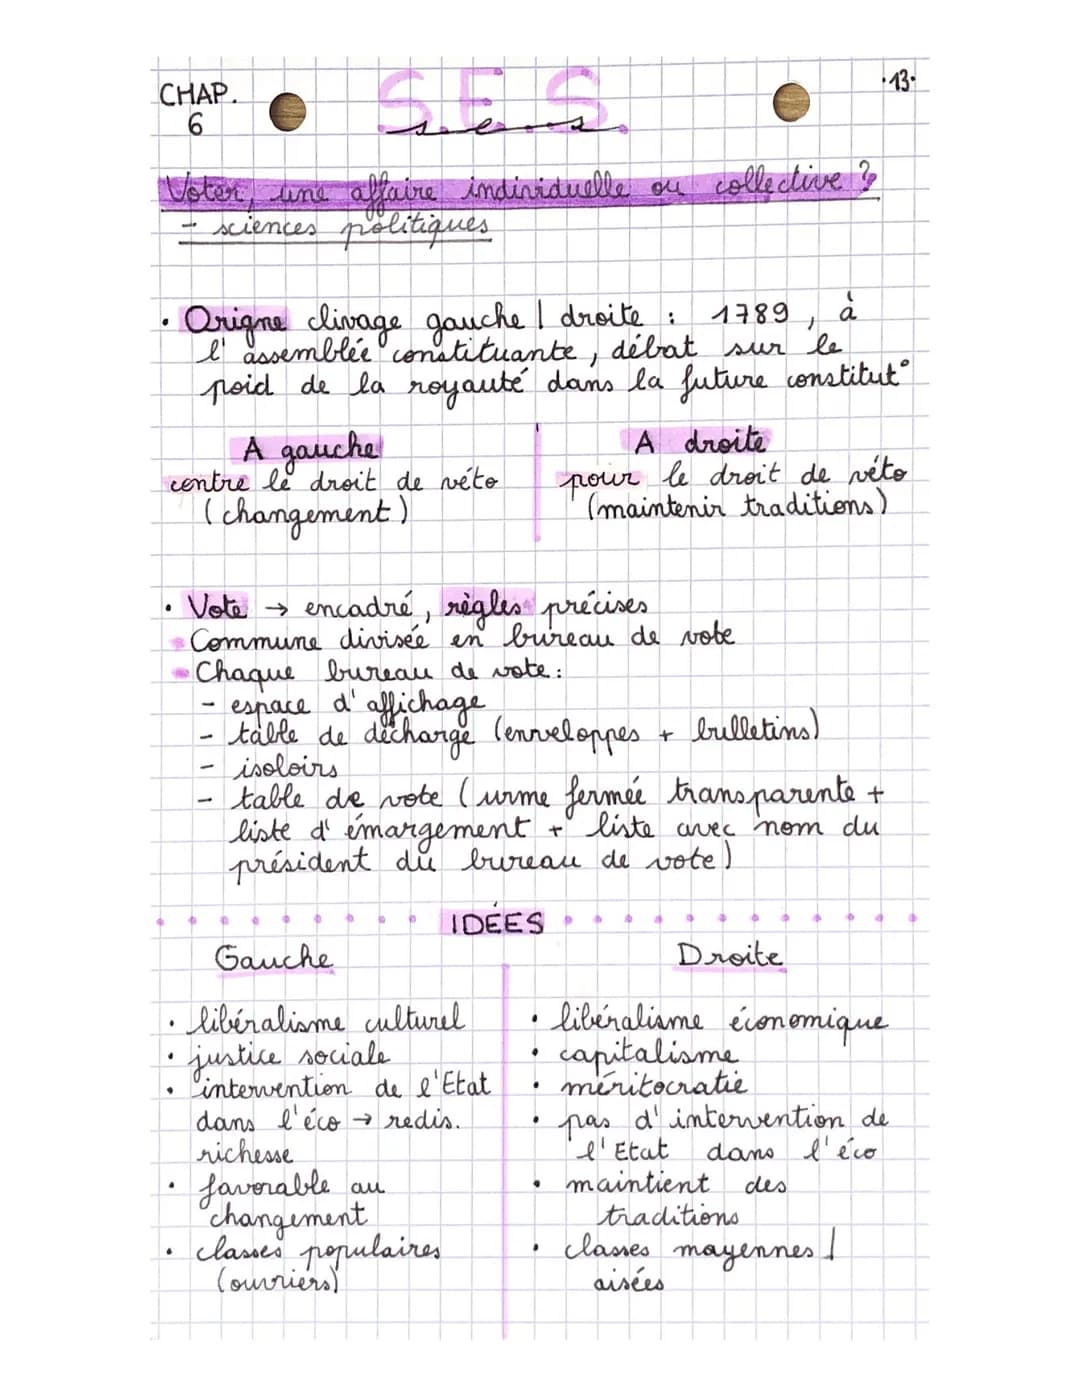 CHAP.
6
S.E.S.
s.e.s
·13·
Voter, une affaire individuelle ou collective ?
- sciences politiques
• Origne clivage gauche / droite : 1789, à
l'assemblée constituante, débat sur le
poid de la royauté dans la future constitut°
A gauche
contre le droit de véto
(changement)
A droite
pour le droit de véto
(maintenir traditions)
• Vote → encadré, règles précises
• Commune divisée en bureau de vote
• Chaque bureau de vote :
- espace d'affichage
- table de décharge (enveloppes + bulletins)
- isoloirs
- table de vote (urme fermée transparente +
liste d'émargement + liste avec nom du
président du bureau de vote)
IDÉES
Gauche
• libéralisme culturel
• justice sociale
• intervention de l'Etat
dans l'éco → redis.
richesse
• favorable au
changement
• classes populaires
(ouvriers)
Droite
• libéralisme économique
• capitalisme
• méritocratie
• pas d'intervention de
l'Etat dans l'éco
• maintient des
traditions
• classes mayennes /
aisées